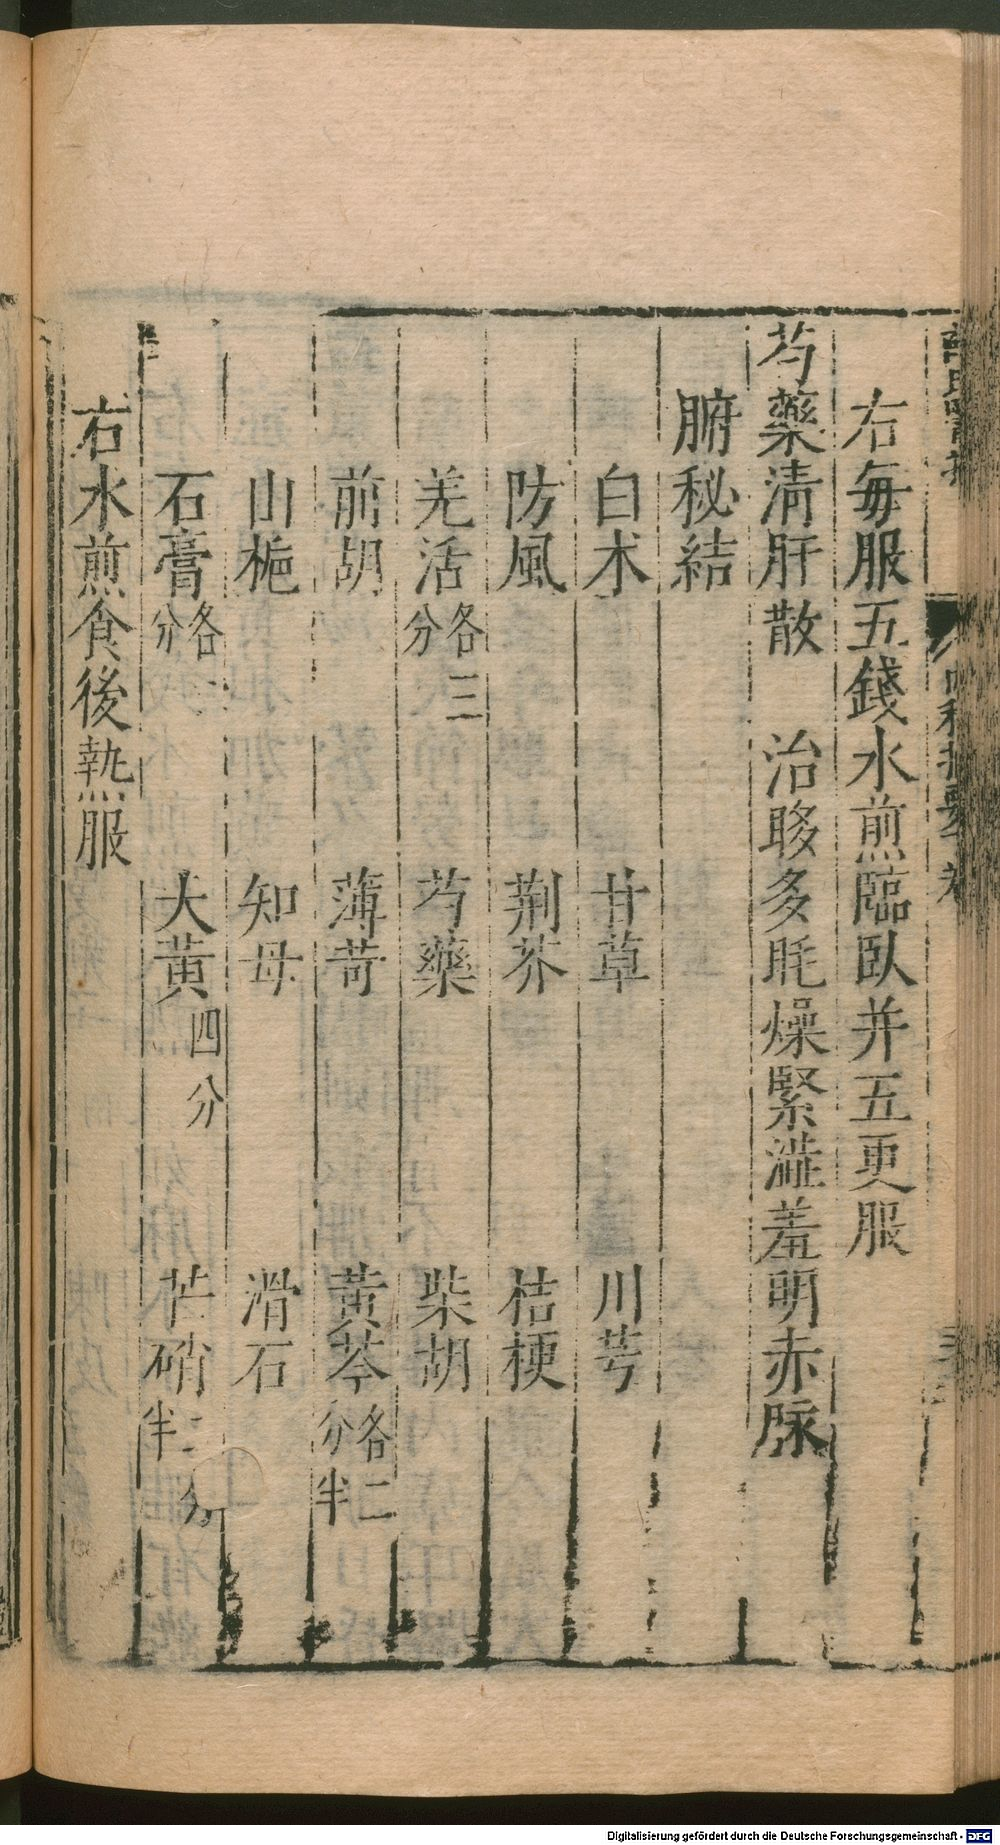 右每服五錢水煎臨臥并五更服
芍藥清肝散　治眵多眊燥緊澁羞明赤脉
腑秘結
白朮　甘草　川芎
防風　荆芥　桔梗
羌活各三分　芍藥　柴胡
前胡　薄苛　黃芩各二分半
山梔　知母　滑石
石膏各　分　大黄四分　芒硝二分半
右水煎食後熱服
Digitalisierung gefördert durch die Deutsche Forschungsgemeinschaft - DFG